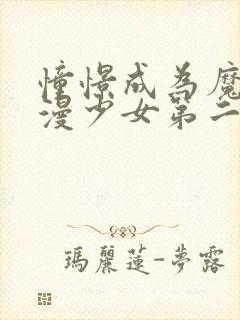 憧憬成為魔
漫少女第二
瑪麗蓮-夢露